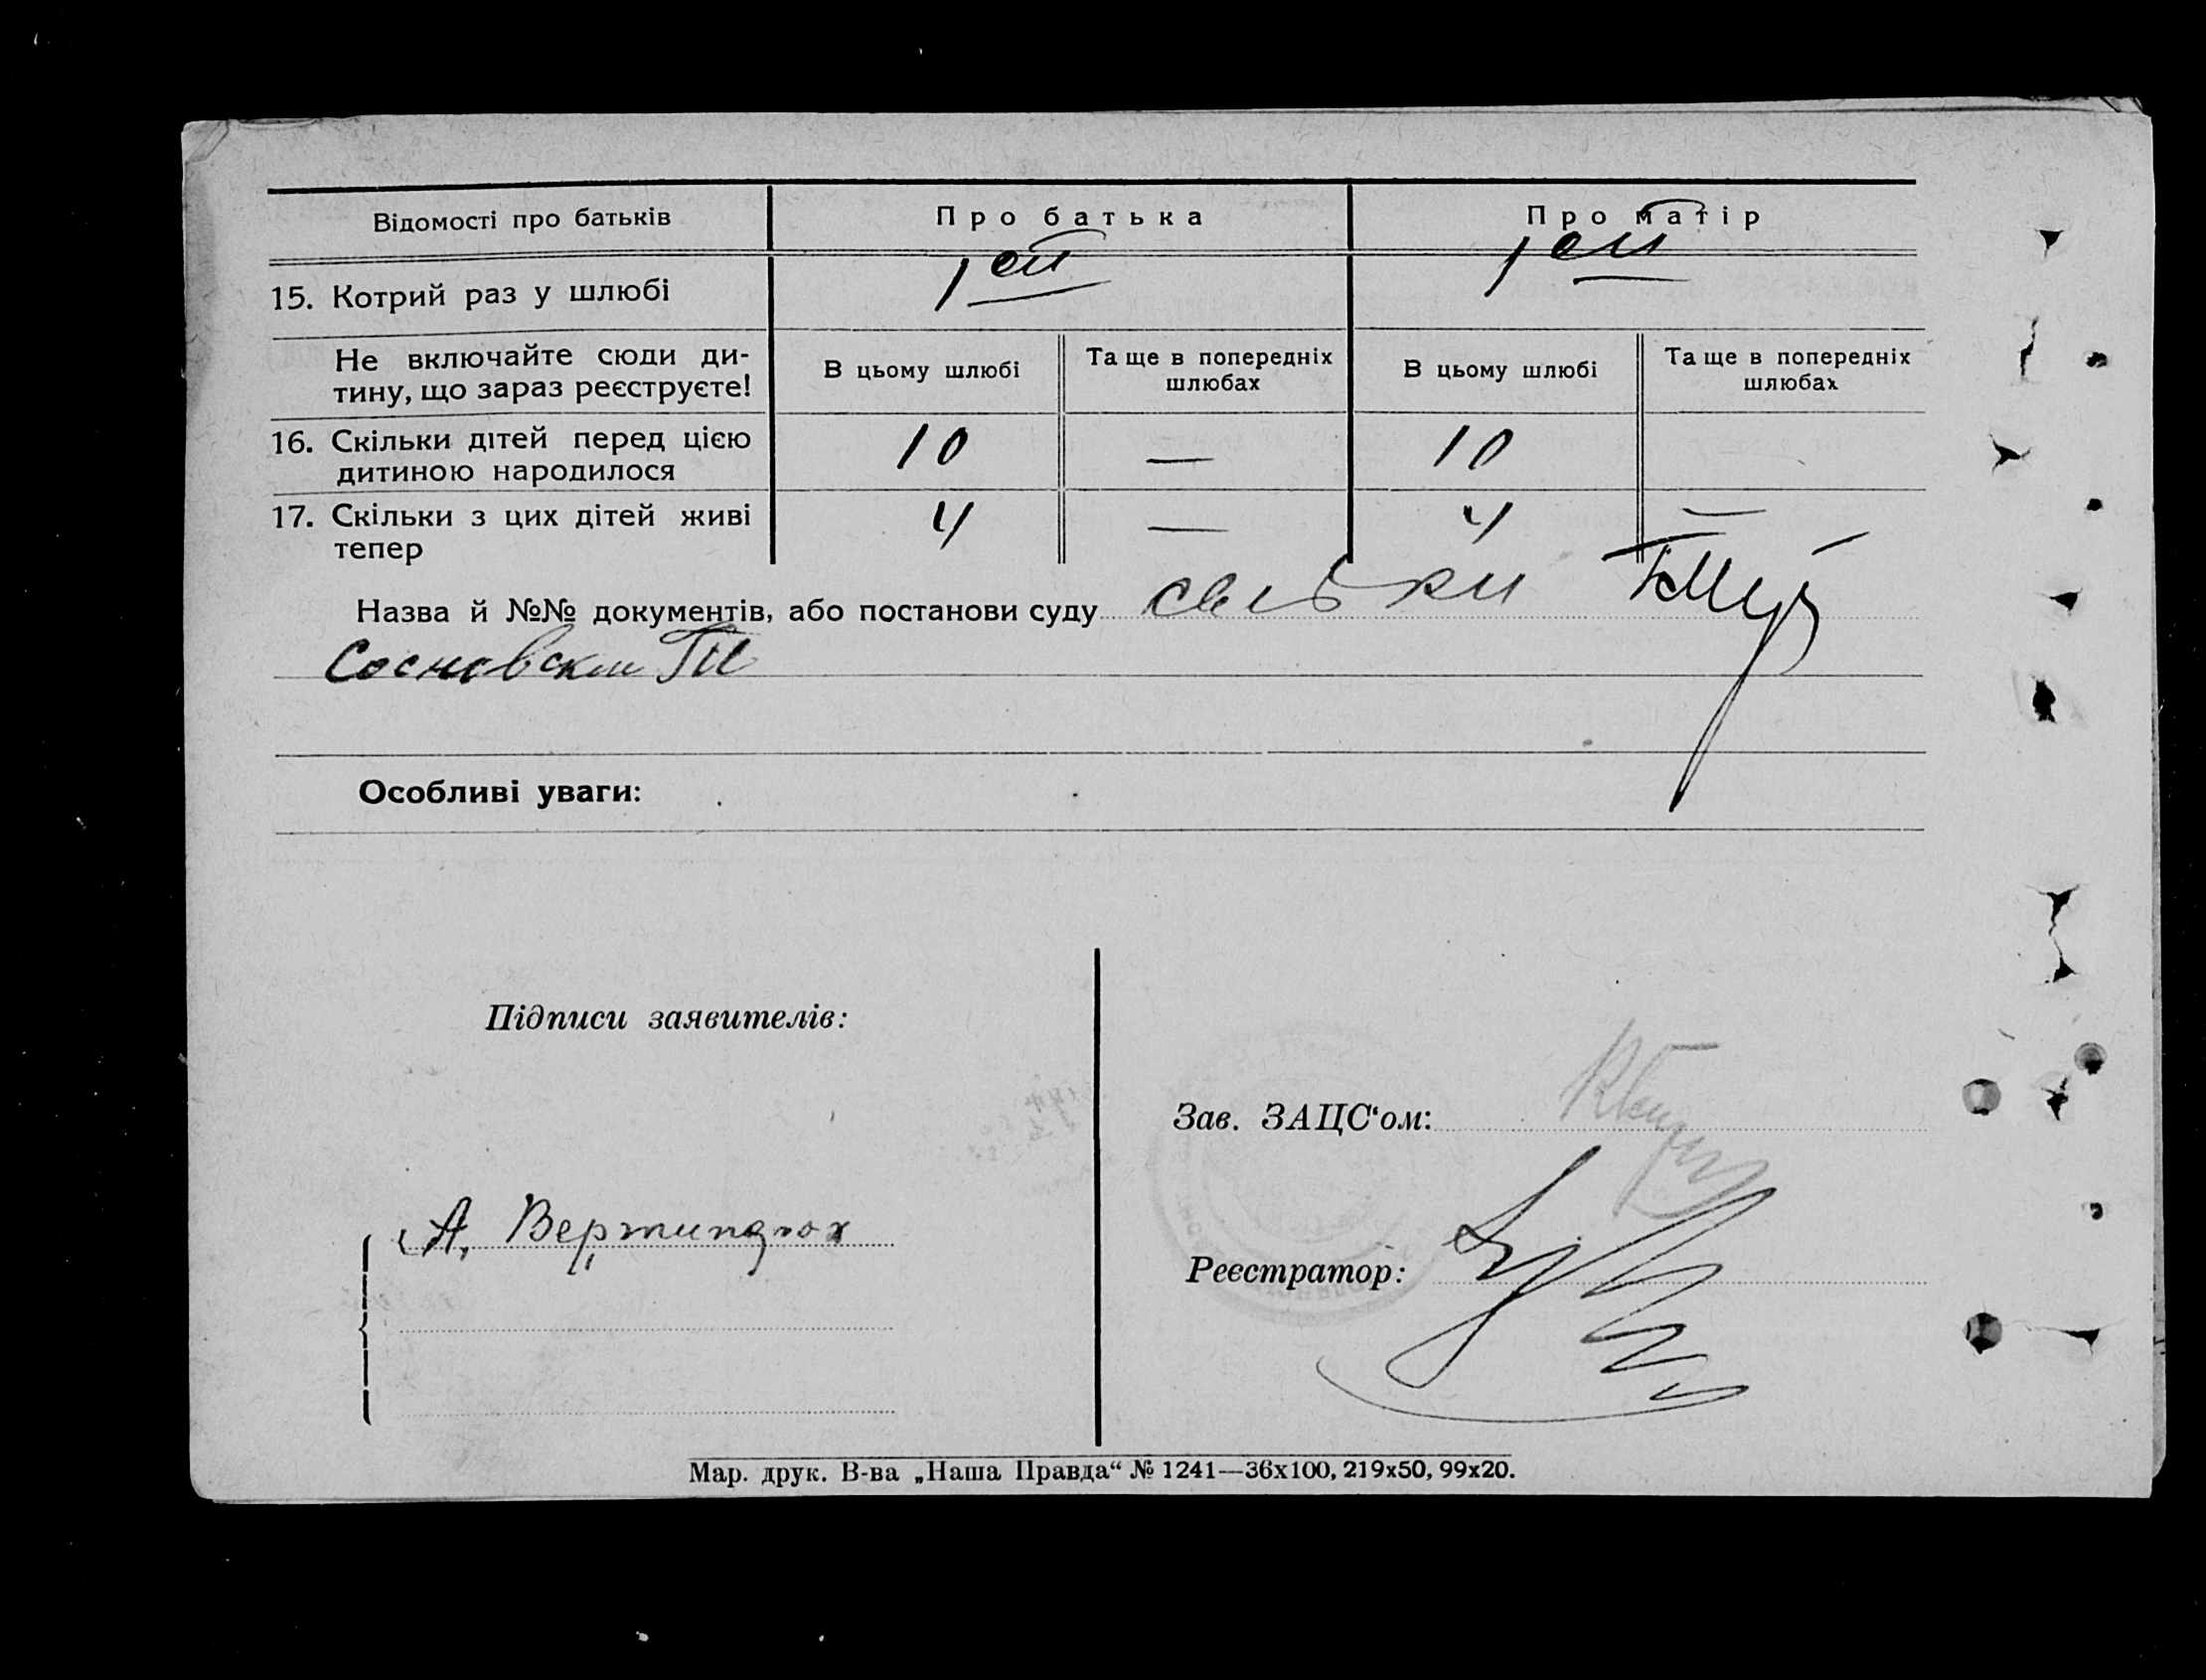 Відомості про батьків Про батька Про матір
15. Котрий раз у шлюбі 1ой 1ой
Не включайте сюди ди-
тину, що зараз реєструєте!
В цьому шлюбі Та ще в попередніх шлюбах В цьому шлюбі Та ще в попередніх шлюбах
16. Скільки дітей перед цією
дитиною народилося 10 — 10
17. Скільки з цих дітей живі
тепер 4 — 4 —
Назва й №№ документів, або постанови суду
Особливі уваги:
Підписи заявителів:
Зав. ЗАЦС‘ом:
А.
Реєстратор:
Мар. друк. В-ва „Наша Правда“ № 1241—36х100, 219х50, 99х20.